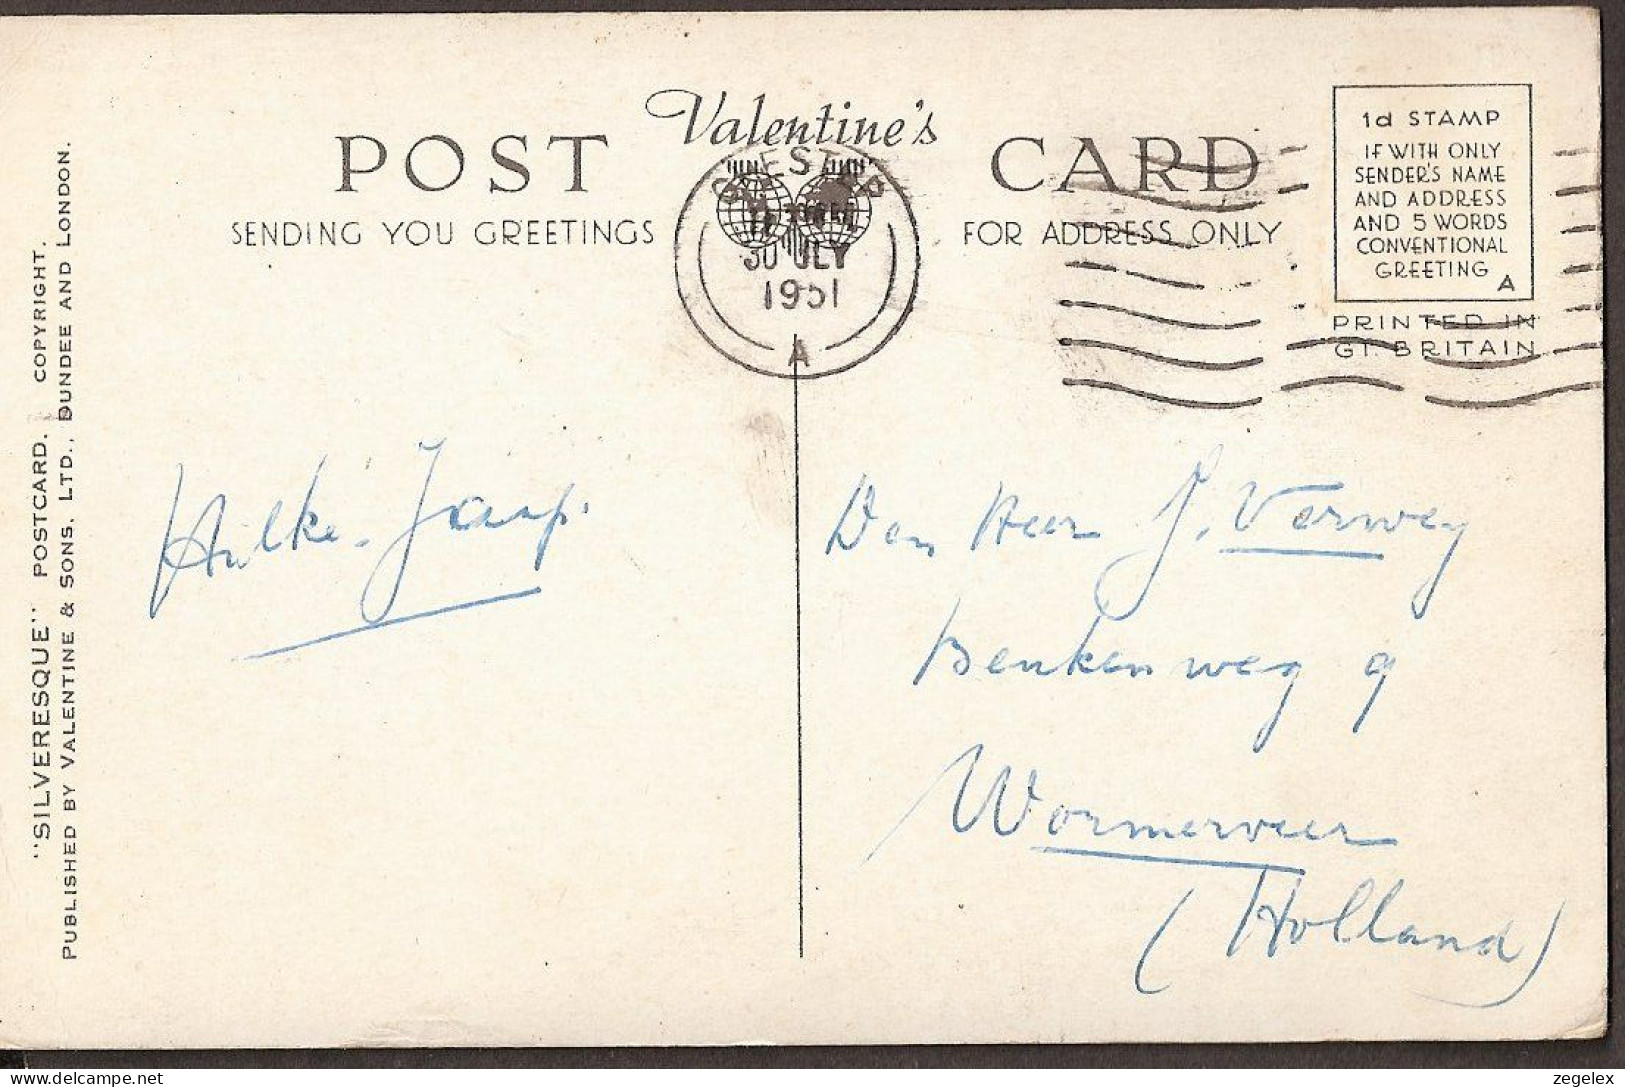 Valentine's
POST CARD
SENDING YOU GREETINGS
FOR ADDRESS ONLY
1d STAMP
IF WITH ONLY
SENDER'S NAME
AND ADDRESS
AND 5 WORDS
CONVENTIONAL
GREETING
A
PRINTED IN
GT. BRITAIN
30 JLY
1951
A
"SILVERESQUE" POSTCARD. COPYRIGHT.
PUBLISHED BY VALENTINE & SONS, LTD., DUNDEE AND LONDON.
Hilke. Jaap.
Den Heer J. Verwey
Benkenweg 9
Wormerveer
(Holland)
zegelex
delcampe.net